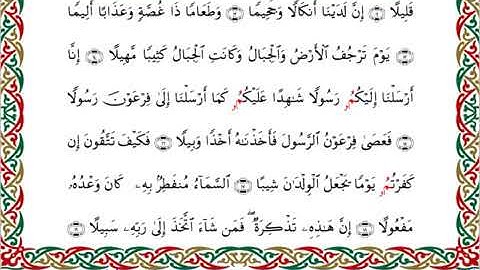 قَلِيلًا ۝١١ إِنَّ لَدَيْنَا أَنكَالًا وَجَحِيمًا ۝١٢ وَطَعَامًا ذَا غُصَّةٍ وَعَذَابًا أَلِيمًا
۝١٣ يَوْمَ تَرْجُفُ الْأَرْضُ وَالْجِبَالُ وَكَانَتِ الْجِبَالُ كَثِيبًا مَّهِيلًا ۝١٤ إِنَّا
أَرْسَلْنَا إِلَيْكُمُۥ رَسُولًا شَٰهِدًا عَلَيْكُمُۥ كَمَا أَرْسَلْنَا إِلَىٰ فِرْعَوْنَ رَسُولًا
۝١٥ فَعَصَىٰ فِرْعَوْنُ الرَّسُولَ فَأَخَذْنَٰهُ أَخْذًا وَبِيلًا ۝١٦ فَكَيْفَ تَتَّقُونَ إِن
كَفَرْتُمُۥ يَوْمًا يَجْعَلُ الْوِلْدَانَ شِيبًا ۝١٧ السَّمَآءُ مُنفَطِرٌ بِهِۦ كَانَ وَعْدُهُۥ
مَفْعُولًا ۝١٨ إِنَّ هَٰذِهِۦ تَذْكِرَةٌ ۖ فَمَن شَآءَ اتَّخَذَ إِلَىٰ رَبِّهِۦ سَبِيلًا ۝١٩